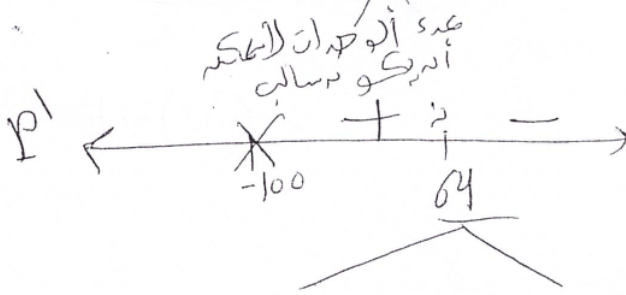 عدد الوحدات لا يمكن
أن يكون سالب
P'
+ ? −
-100 64